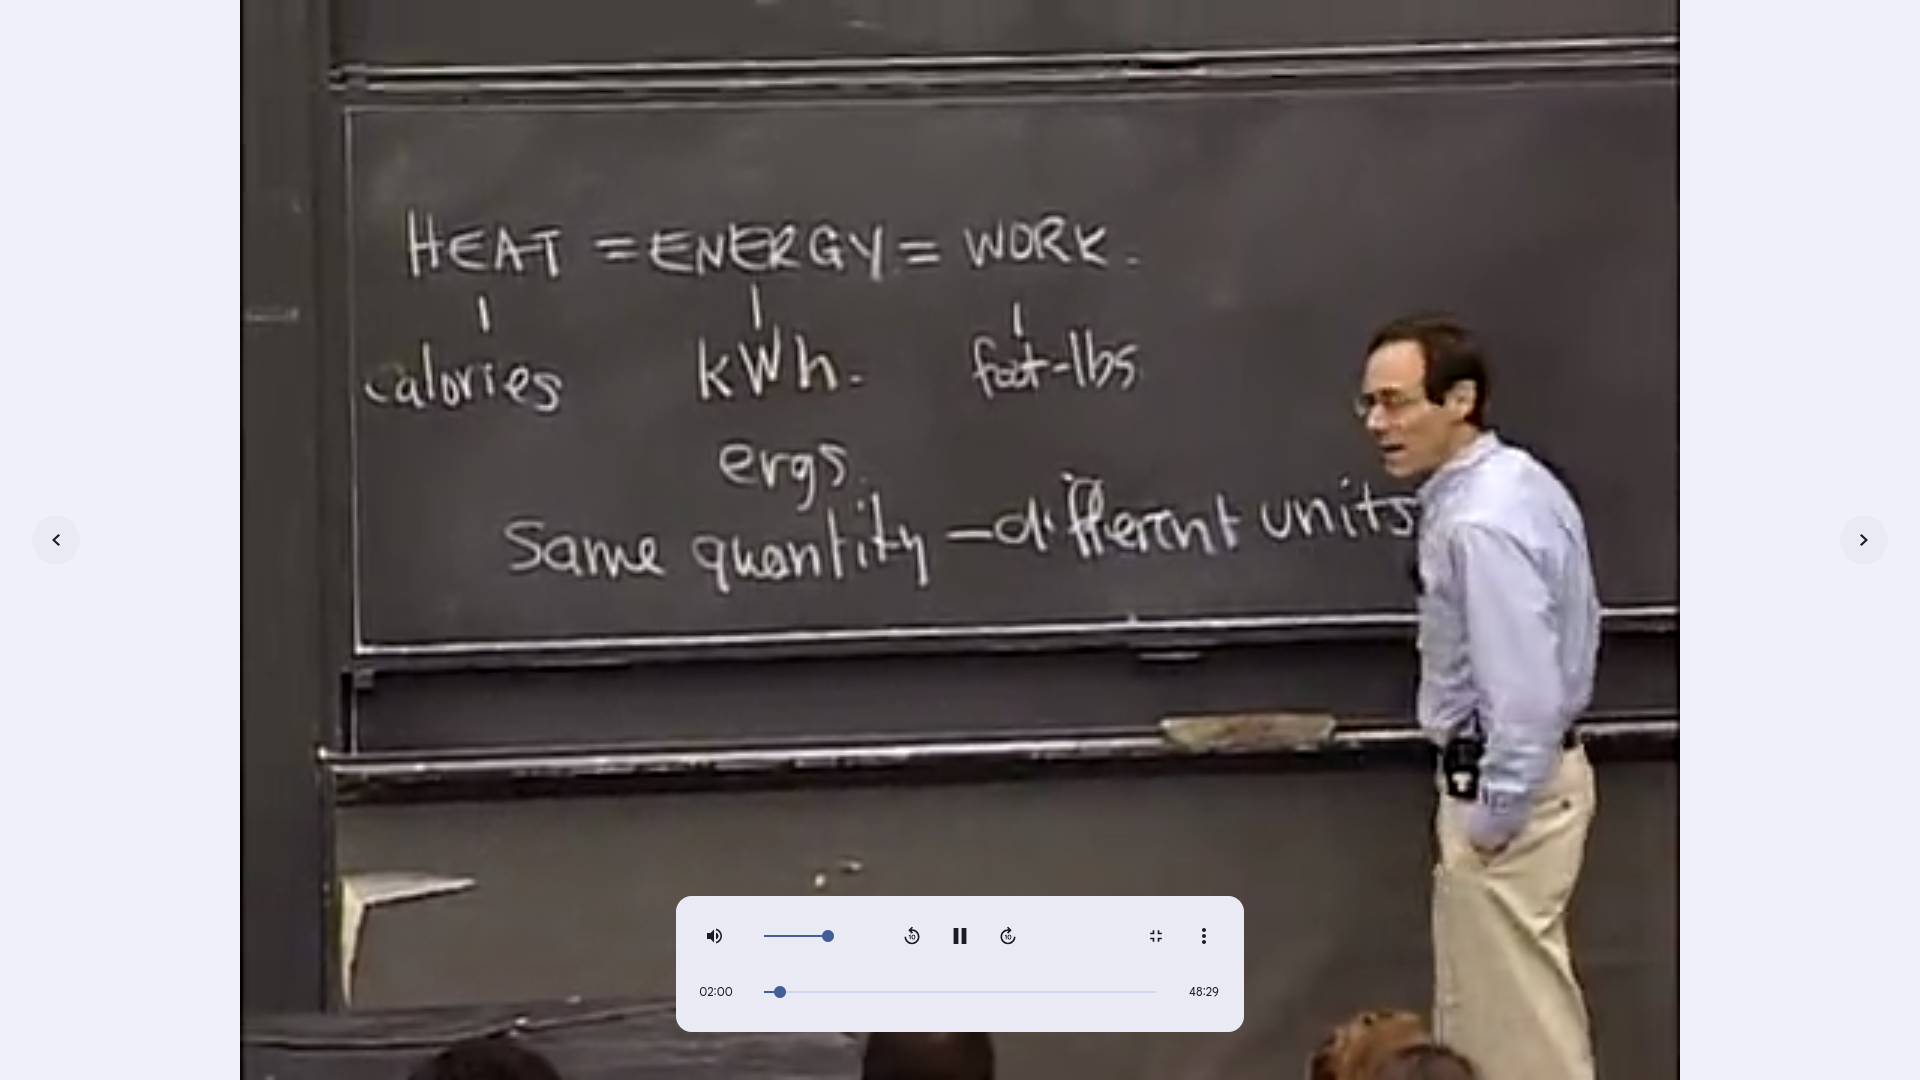 HEAT = ENERGY = WORK.
calories kWh. foot-lbs
ergs.
Same quantity - different units
10 10
02:00 48:29